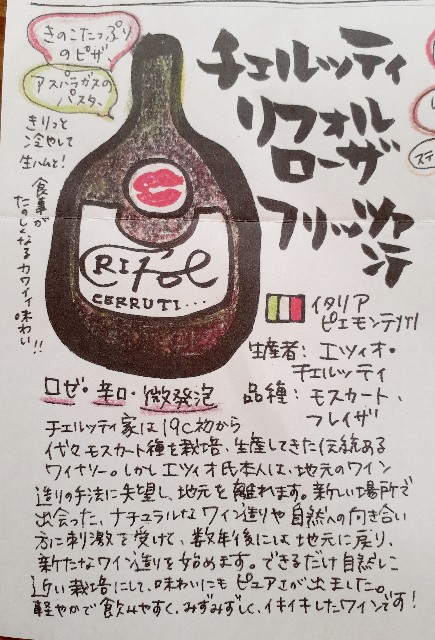 きのこたっぷり
のピザ、
アスパラガスの
パスタ、
きりっと
冷やして
生ハムと!
食事が
たのしくなるカワイイ味わい!!
チェルッティ
リフォル
ローザ
フリッツァ
ンテ
RIfol
CERRUTI...
イタリア
ピエモンテ州
生産者: エツィオ・
チェルッティ
品種: モスカート、
フレイザ
ロゼ・辛口・微発泡
チェルッティ家は19c初から
代々モスカート種を栽培、生産してきた伝統ある
ワイナリー。しかしエツィオ氏本人は、地元のワイン
造りの手法に失望し、地元を離れます。新しい場所で
出会った、ナチュラルなワイン造りや自然への向き合い
方に刺激を受けて、数年後には地元に戻り、
新たなワイン造りを始めます。できるだけ自然に
近い栽培にして、味わいにもピュアさが出ました。
軽やかで飲みやすく、みずみずしく、イキイキしたワインです!
ステ